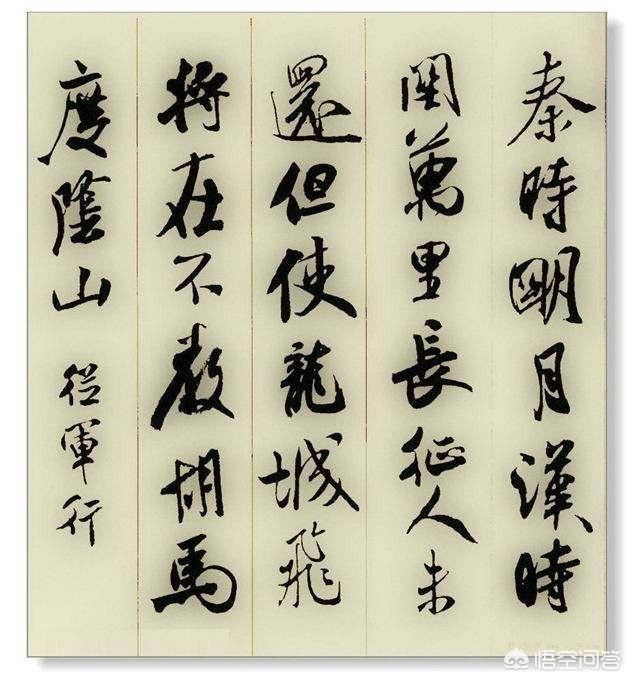 秦時明月漢時
關萬里長征人未
還但使龍城飛
將在不教胡馬
度陰山 從軍行
悟空问答